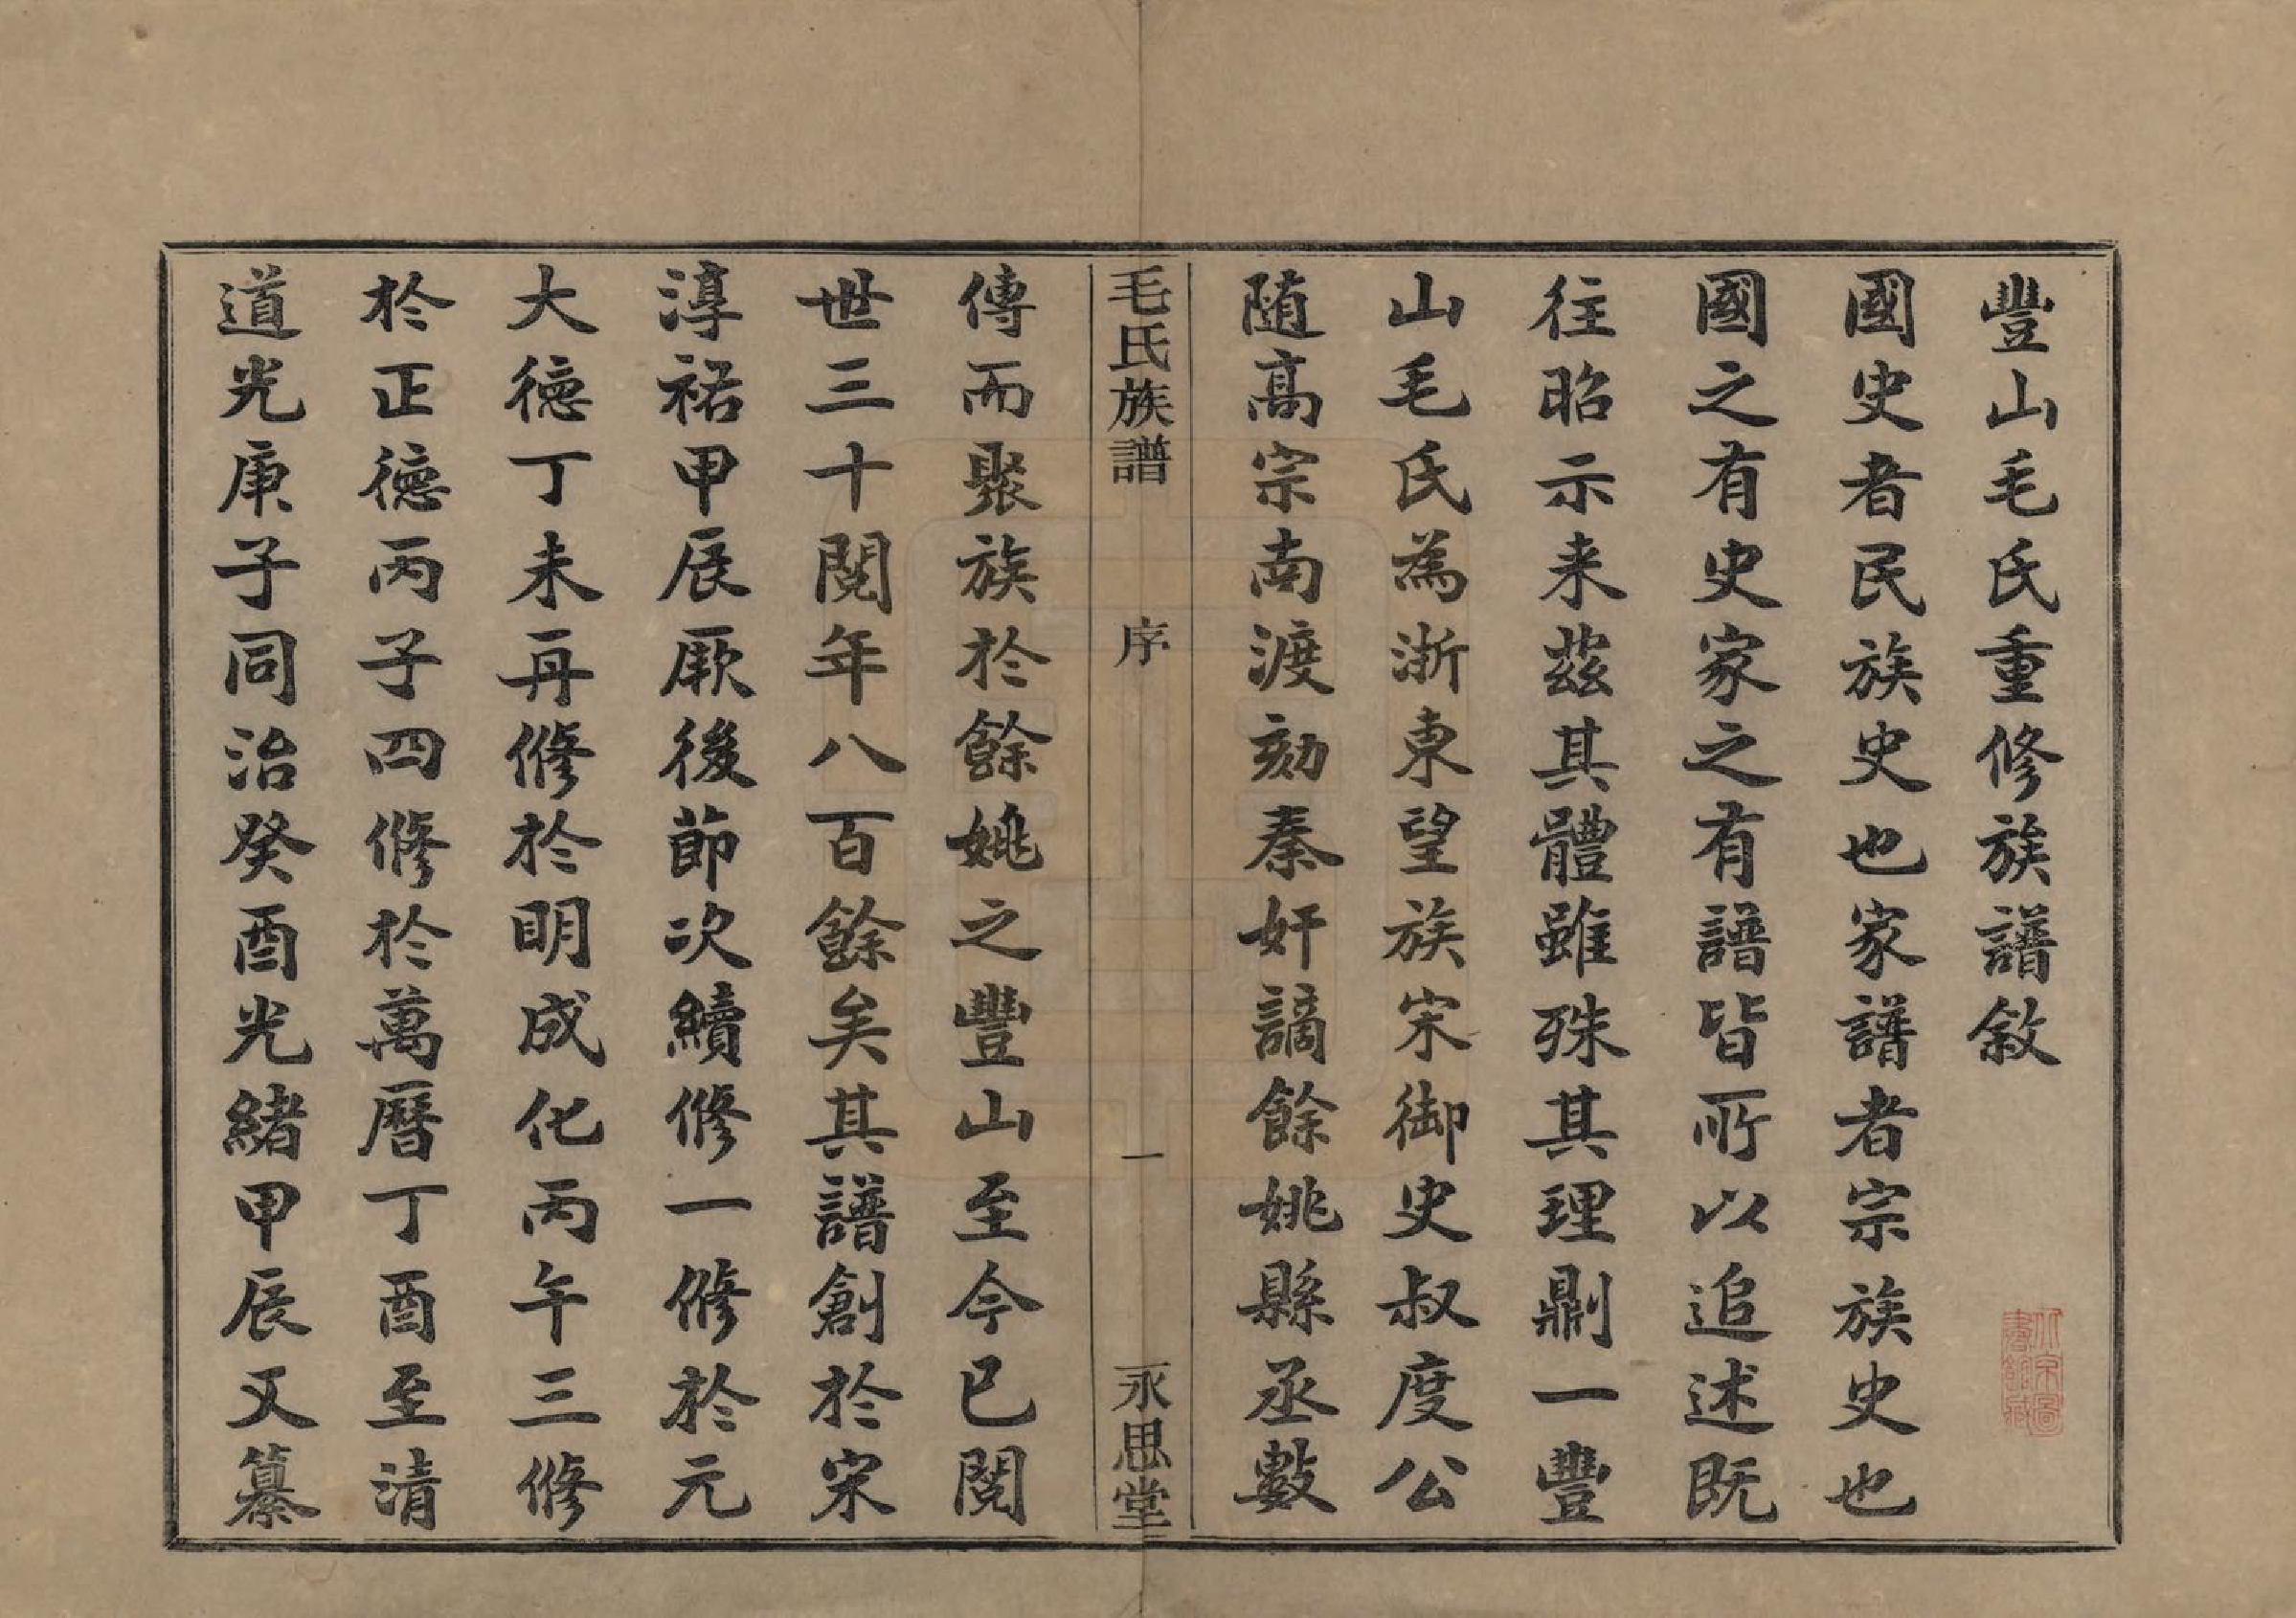 豐山毛氏重修族譜敘
國史者民族史也家譜者宗族史也
國之有史家之有譜皆所以追述既
往昭示来茲其體雖殊其理劓一豐
山毛氏為浙東望族宋御史叔度公
随高宗南渡劾秦奸謫餘姚縣丞數
毛氏族譜 序 一 永思堂
傳而聚族於餘姚之豐山至今已閱
世三十閱年八百餘矣其譜創於宋
淳祐甲辰厥後節次續修一修於元
大德丁未再修於明成化丙午三修
於正德丙子四修於萬曆丁酉至清
道光庚子同治癸酉光緒甲辰又纂